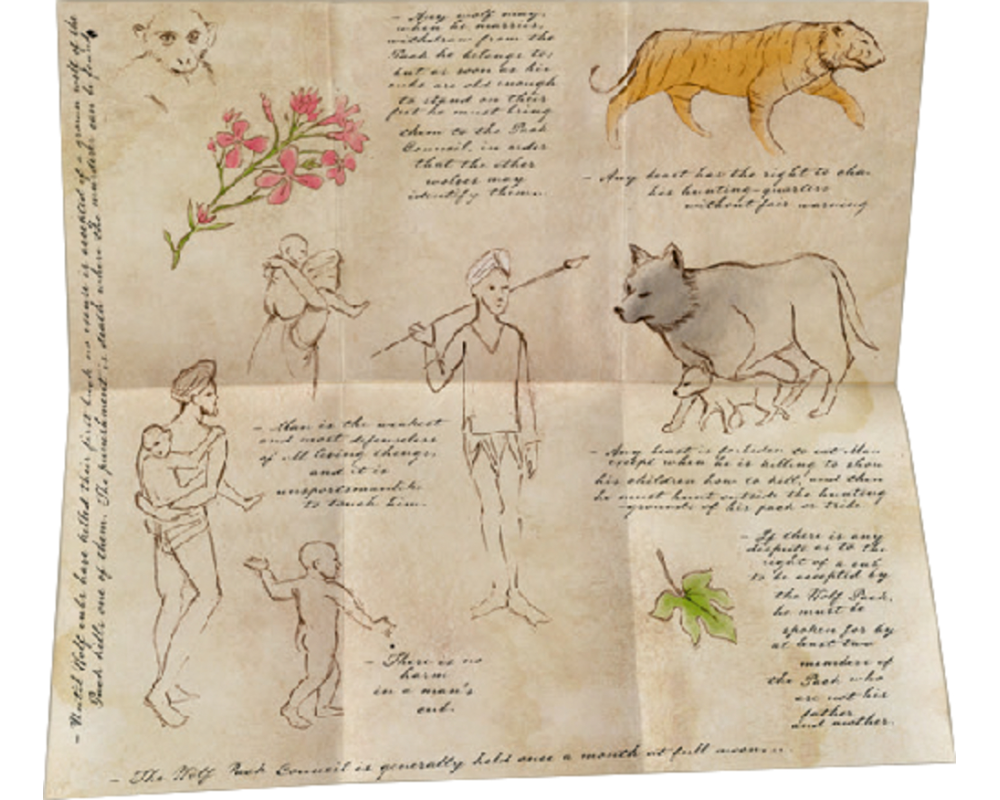 - Any wolf may,
when he marries,
withdraw from the
Pack he belongs to;
but as soon as his
cubs are old enough
to stand on their
feet he must bring
them to the Pack
Council, in order
that the other
wolves may
identify them.
- Any beast has the right to
his hunting-quarters
without fair warning
- Man is the weakest
and most defenseless
of all living things,
and it is
unsportsmanlike
to touch him.
- Any beast is forbidden to eat Man
except when he is killing to show
his children how to kill, and then
he must hunt outside the hunting
-grounds of his pack or tribe
- If there is any
dispute as to the
right of a cub
to be accepted by
the Wolf Pack,
he must be
spoken for by
at least two
members of
the Pack who
are not his
father
and mother.
- There is no
harm
in a man's
cub.
- Until Wolf cubs have killed their first buck no excuse is accepted if a grown wolf of the
Pack kills one of them. The punishment is death where the murderer can be found
- The Wolf Pack Council is generally held once a month at full moon